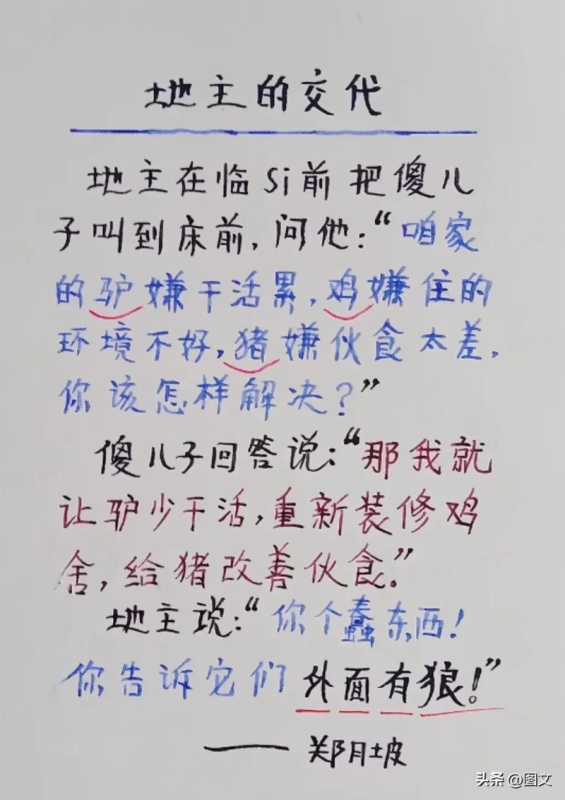 地主的交代
地主在临Si前把傻儿
子叫到床前,问他:“咱家
的驴嫌干活累,鸡嫌住的
环境不好,猪嫌伙食太差,
你该怎样解决?”
傻儿子回答说:“那我就
让驴少干活,重新装修鸡
舍,给猪改善伙食。”
地主说:“你个蠢东西!
你告诉它们外面有狼!”
——郑月坡
头条@图文